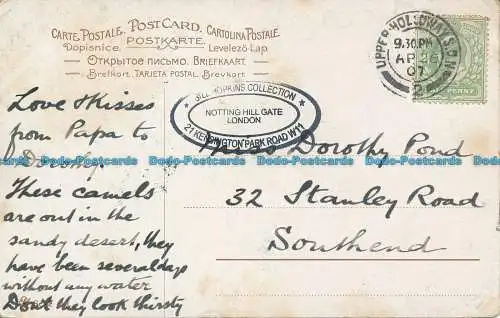 CARTE POSTALE. POST CARD. CARTOLINA POSTALE.
Dopisnice. POSTKARTE. Levelező-Lap
ОТКРЫТОЕ ПИСЬМО. BRIEFKAART.
Brefkort. TARJETA POSTAL. Brevkort.
UPPER HOLLOWAY S.O. N.
9.30 PM
AP
07
BILL HOPKINS COLLECTION
NOTTING HILL GATE
LONDON
21 KENSINGTON PARK ROAD W11
Love & Kisses
from Papa to
Dorothy.
These camels
are out in the
sandy desert, they
have been several days
without any water
Don't they look thirsty
Miss Dorothy Pond
32 Stanley Road
Southend
Dodo-Postcards Dodo-Postcards Dodo-Postcards Dodo-Postcards